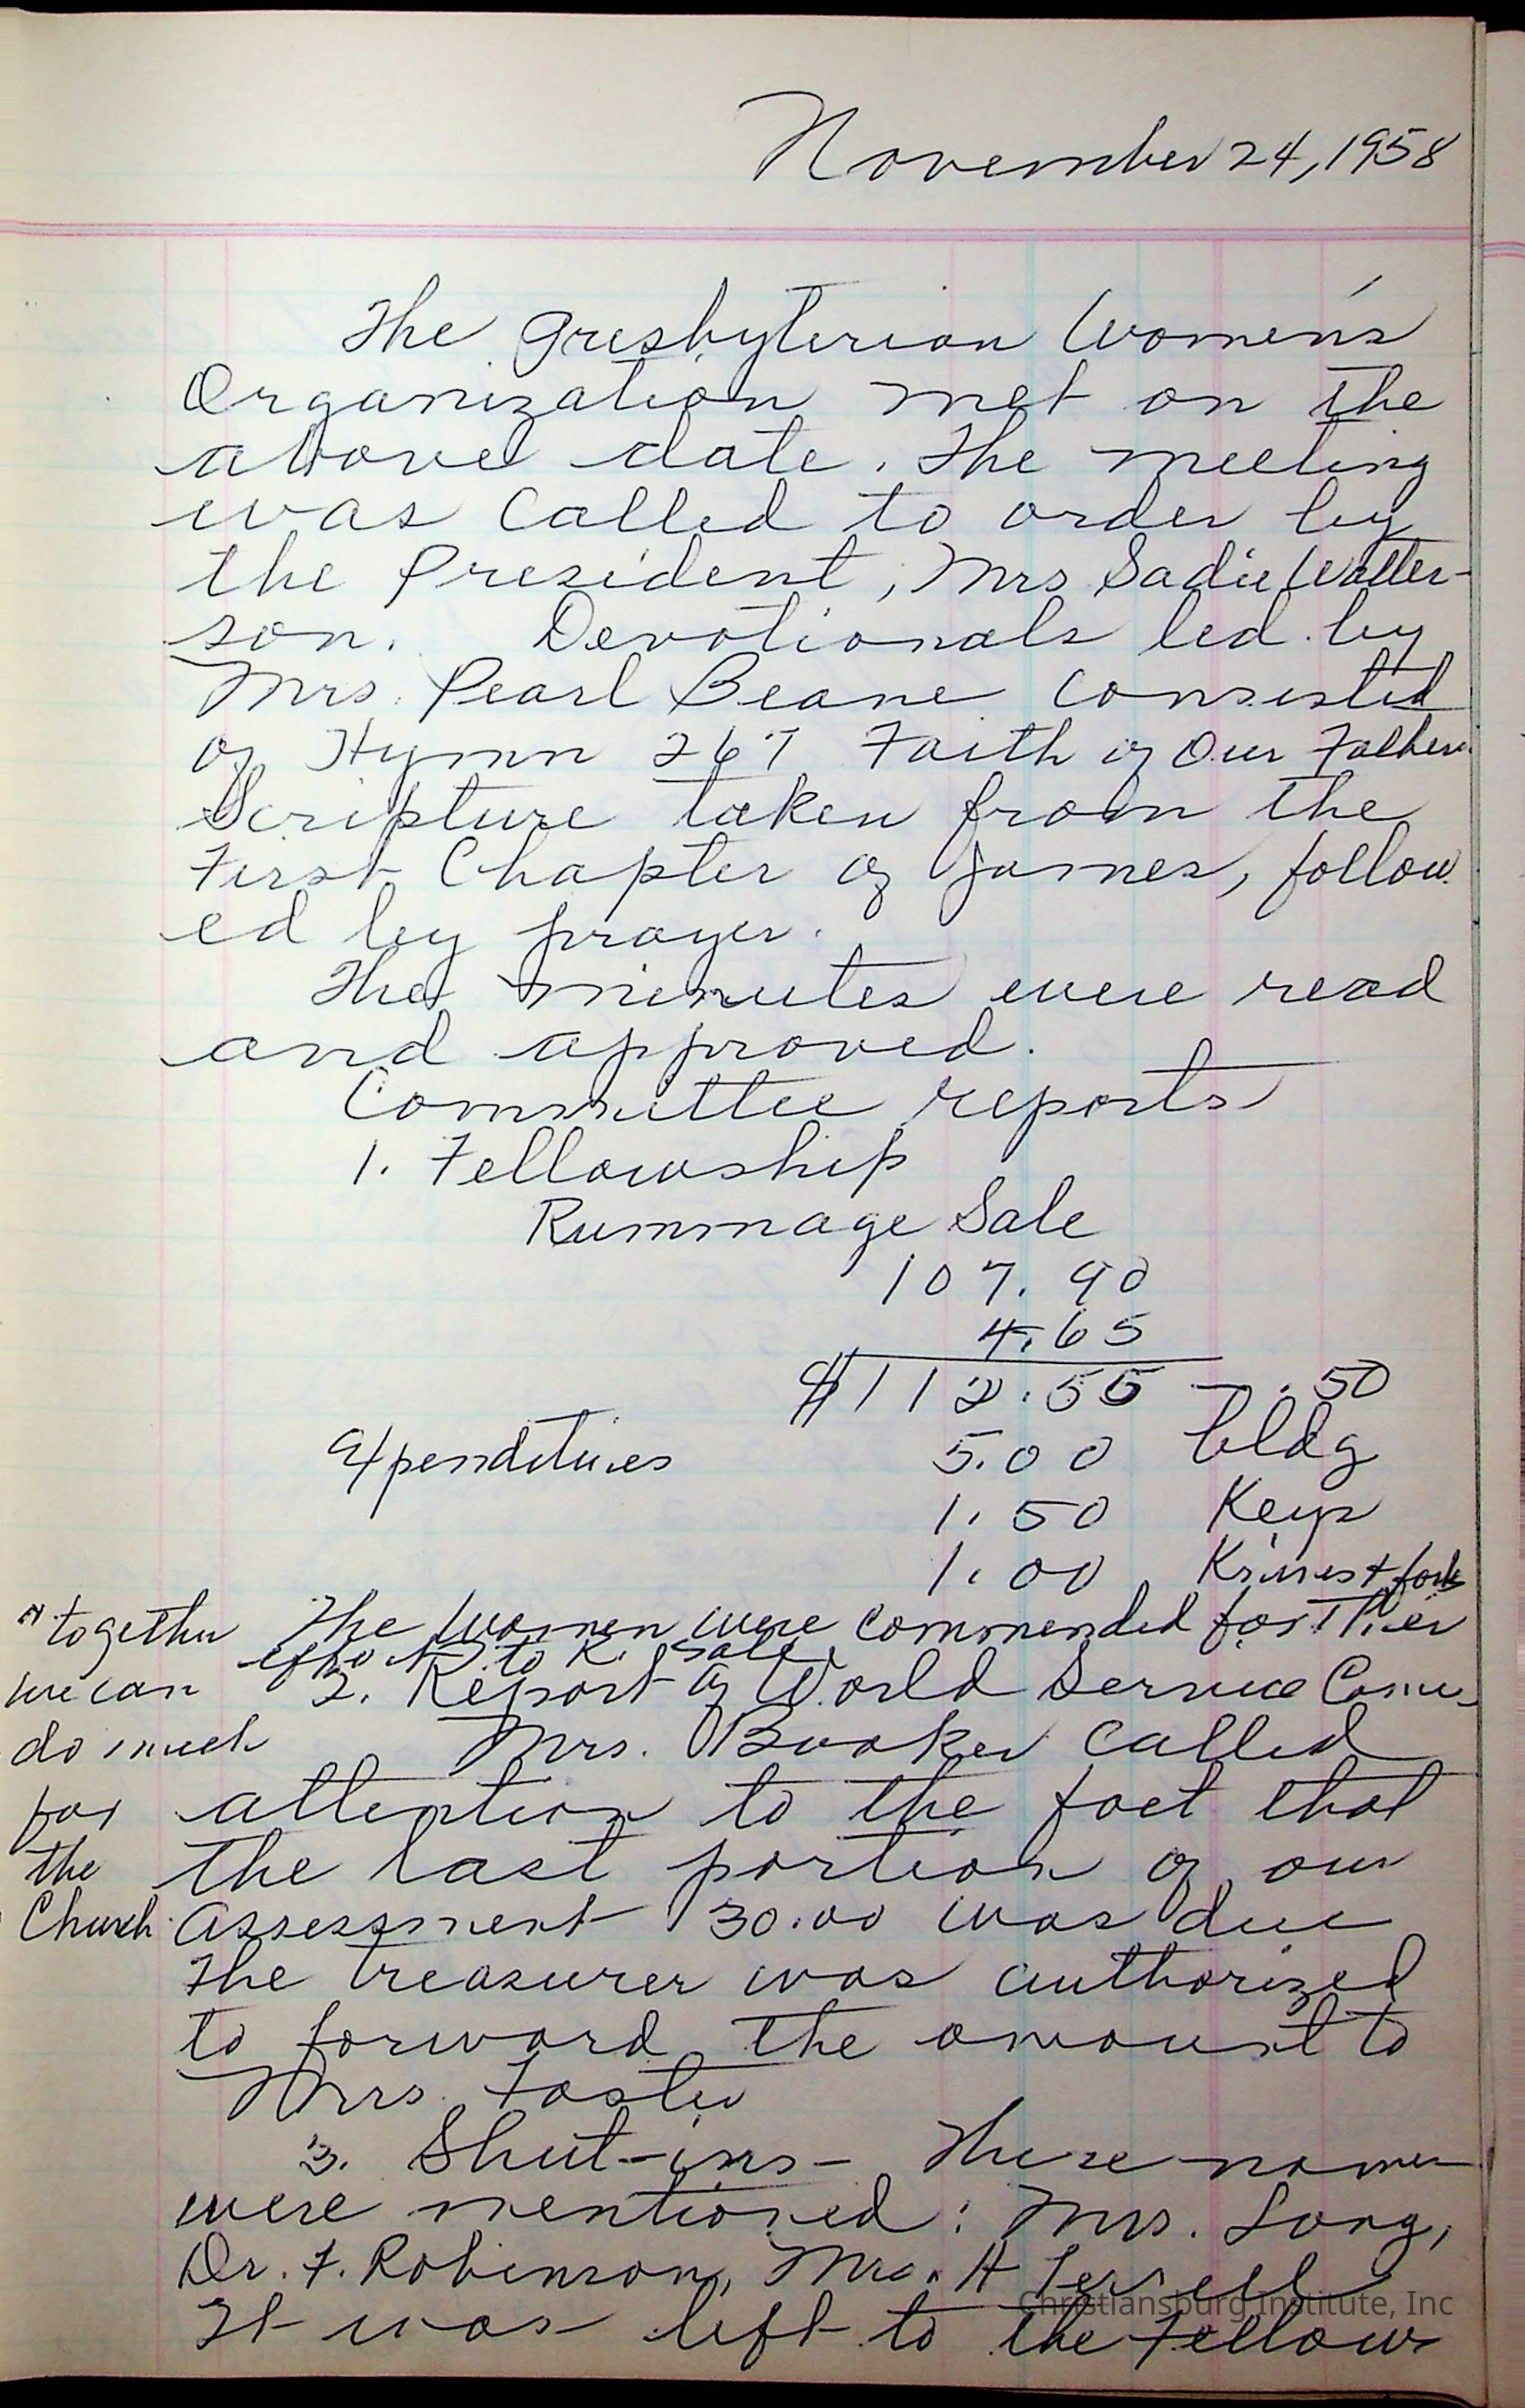 November 24, 1958
The Presbyterian Women's
Organization met on the
above date. The meeting
was called to order by
the President, Mrs Sadie Watter-
son. Devotionals led by
Mrs. Pearl Beane consisted
of Hymn 267 Faith of Our Fathers
Scripture taken from the
First Chapter of James, follow
ed by prayer.
The minutes were read
and approved.
Committee reports
1. Fellowship
Rummage Sale
107.90
4.65
$112.55 - .50
Expenditures 5.00 bldg
1.50 Keys
1.00 Knives + forks
The women were commended for their
efforts to R. Sale.
"together
we can
do much
for
the
Church
2. Report of World Service Com.
Mrs. Booker called
attention to the fact that
the last portion of our
assessment 30.00 was due
The treasurer was authorized
to forward the amount to
Mrs. Foster
3. Shut-ins - These names
were mentioned: Mrs. Long,
Dr. F. Robinson, Mrs. H Terrell
It was left to the Fellow
Christiansburg Institute, Inc